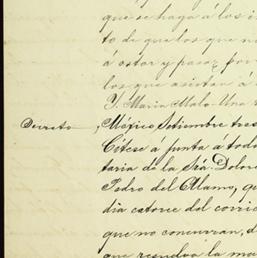 que se haga á los in
to de que los que no
á estar y pasar por
los que asistan á
Y. Maria Malo. Una r
Decreto. México Setiembre tres
Cítese á junta á todo
taria de la Srá. Dolore
Pedro del Alamo, qu
dia catorce del corrie
que no concurran, d
que resuelva la ma